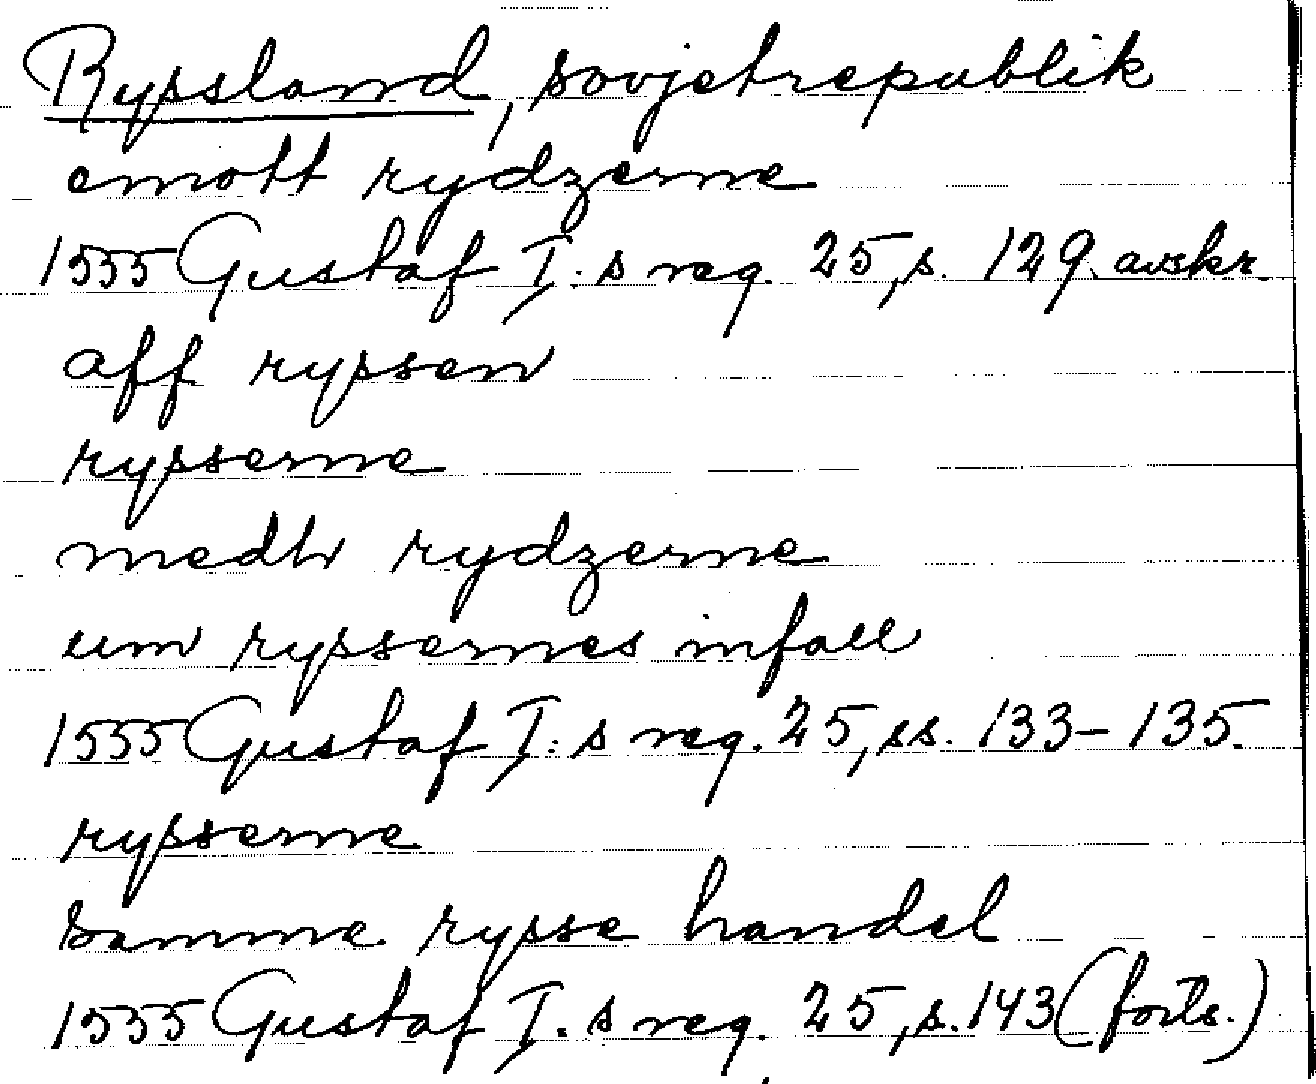 Ryssland, sovjetrepublik
emott rydzerne
1555 Gustaf I:s reg. 25, s. 129. avskr.
aff ryssen
rysserne
medh rydzerne
um ryssernes infall
1555 Gustaf I:s reg. 25, ss. 133-135.
rysserne
samme rysse handel
1555 Gustaf I:s reg. 25, s. 143 (forts.)